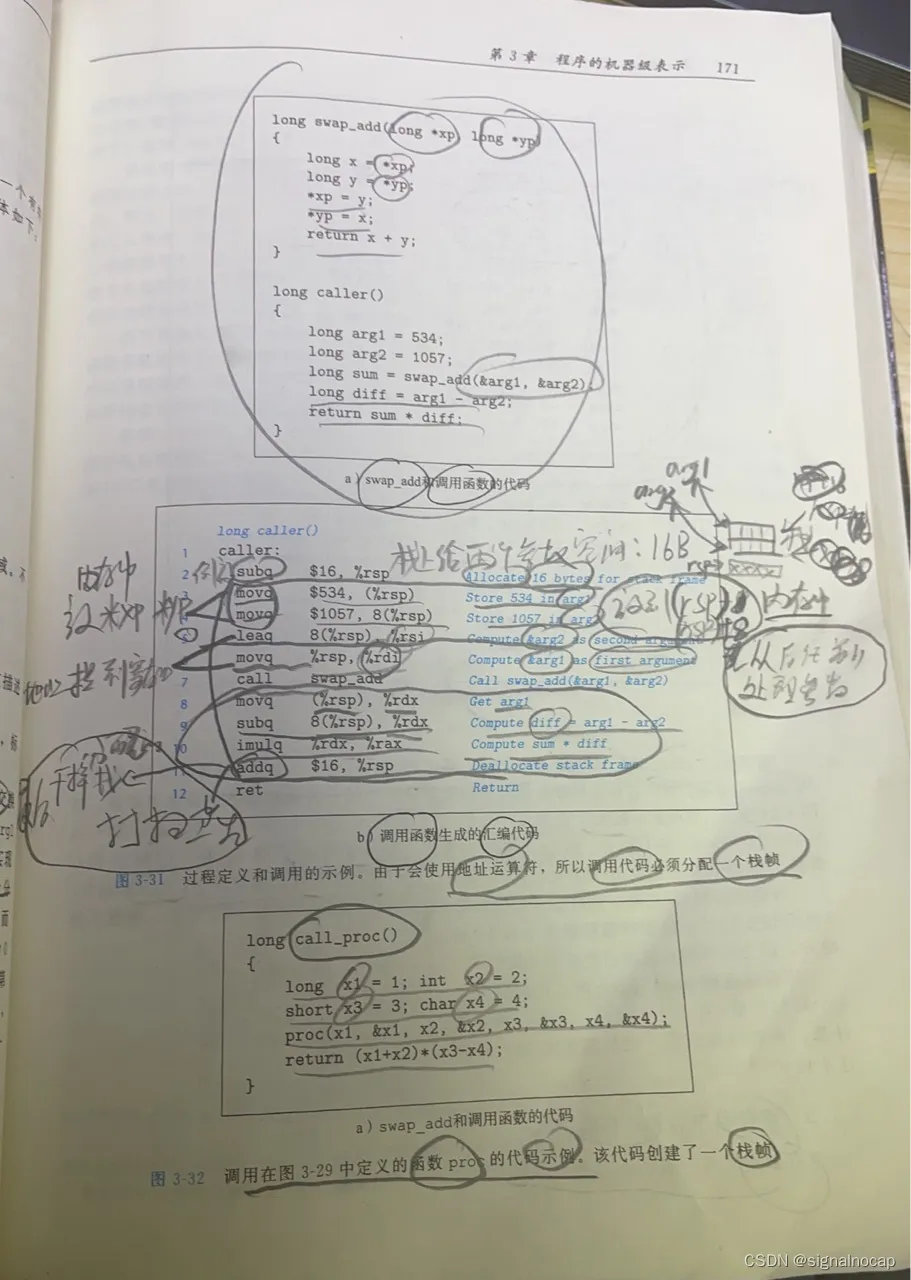 第3章 程序的机器级表示 171
long swap_add(long *xp, long *yp)
{
long x = *xp;
long y = *yp;
*xp = y;
*yp = x;
return x + y;
}
long caller()
{
long arg1 = 534;
long arg2 = 1057;
long sum = swap_add(&arg1, &arg2);
long diff = arg1 - arg2;
return sum * diff;
}
a）swap_add和调用函数的代码
arg1
long caller()
1 caller:
栈上给两个参数空间：16B
2 subq $16, %rsp Allocate 16 bytes for stack frame
3 movq $534, (%rsp) Store 534 in arg1
4 movq $1057, 8(%rsp) Store 1057 in arg2
5 leaq 8(%rsp), %rsi Compute &arg2 as second argument
6 movq %rsp, %rdi Compute &arg1 as first argument
7 call swap_add Call swap_add(&arg1, &arg2)
8 movq (%rsp), %rdx Get arg1
9 subq 8(%rsp), %rdx Compute diff = arg1 - arg2
10 imulq %rdx, %rax Compute sum * diff
11 addq $16, %rsp Deallocate stack frame
12 ret Return
内存中
rsp
从后往前
处理参数
b）调用函数生成的汇编代码
图 3-31 过程定义和调用的示例。由于会使用地址运算符，所以调用代码必须分配一个栈帧
long call_proc()
{
long x1 = 1; int x2 = 2;
short x3 = 3; char x4 = 4;
proc(x1, &x1, x2, &x2, x3, &x3, x4, &x4);
return (x1+x2)*(x3-x4);
}
a）swap_add和调用函数的代码
图 3-32 调用在图 3-29 中定义的函数 proc 的代码示例。该代码创建了一个栈帧
CSDN @signalnocap